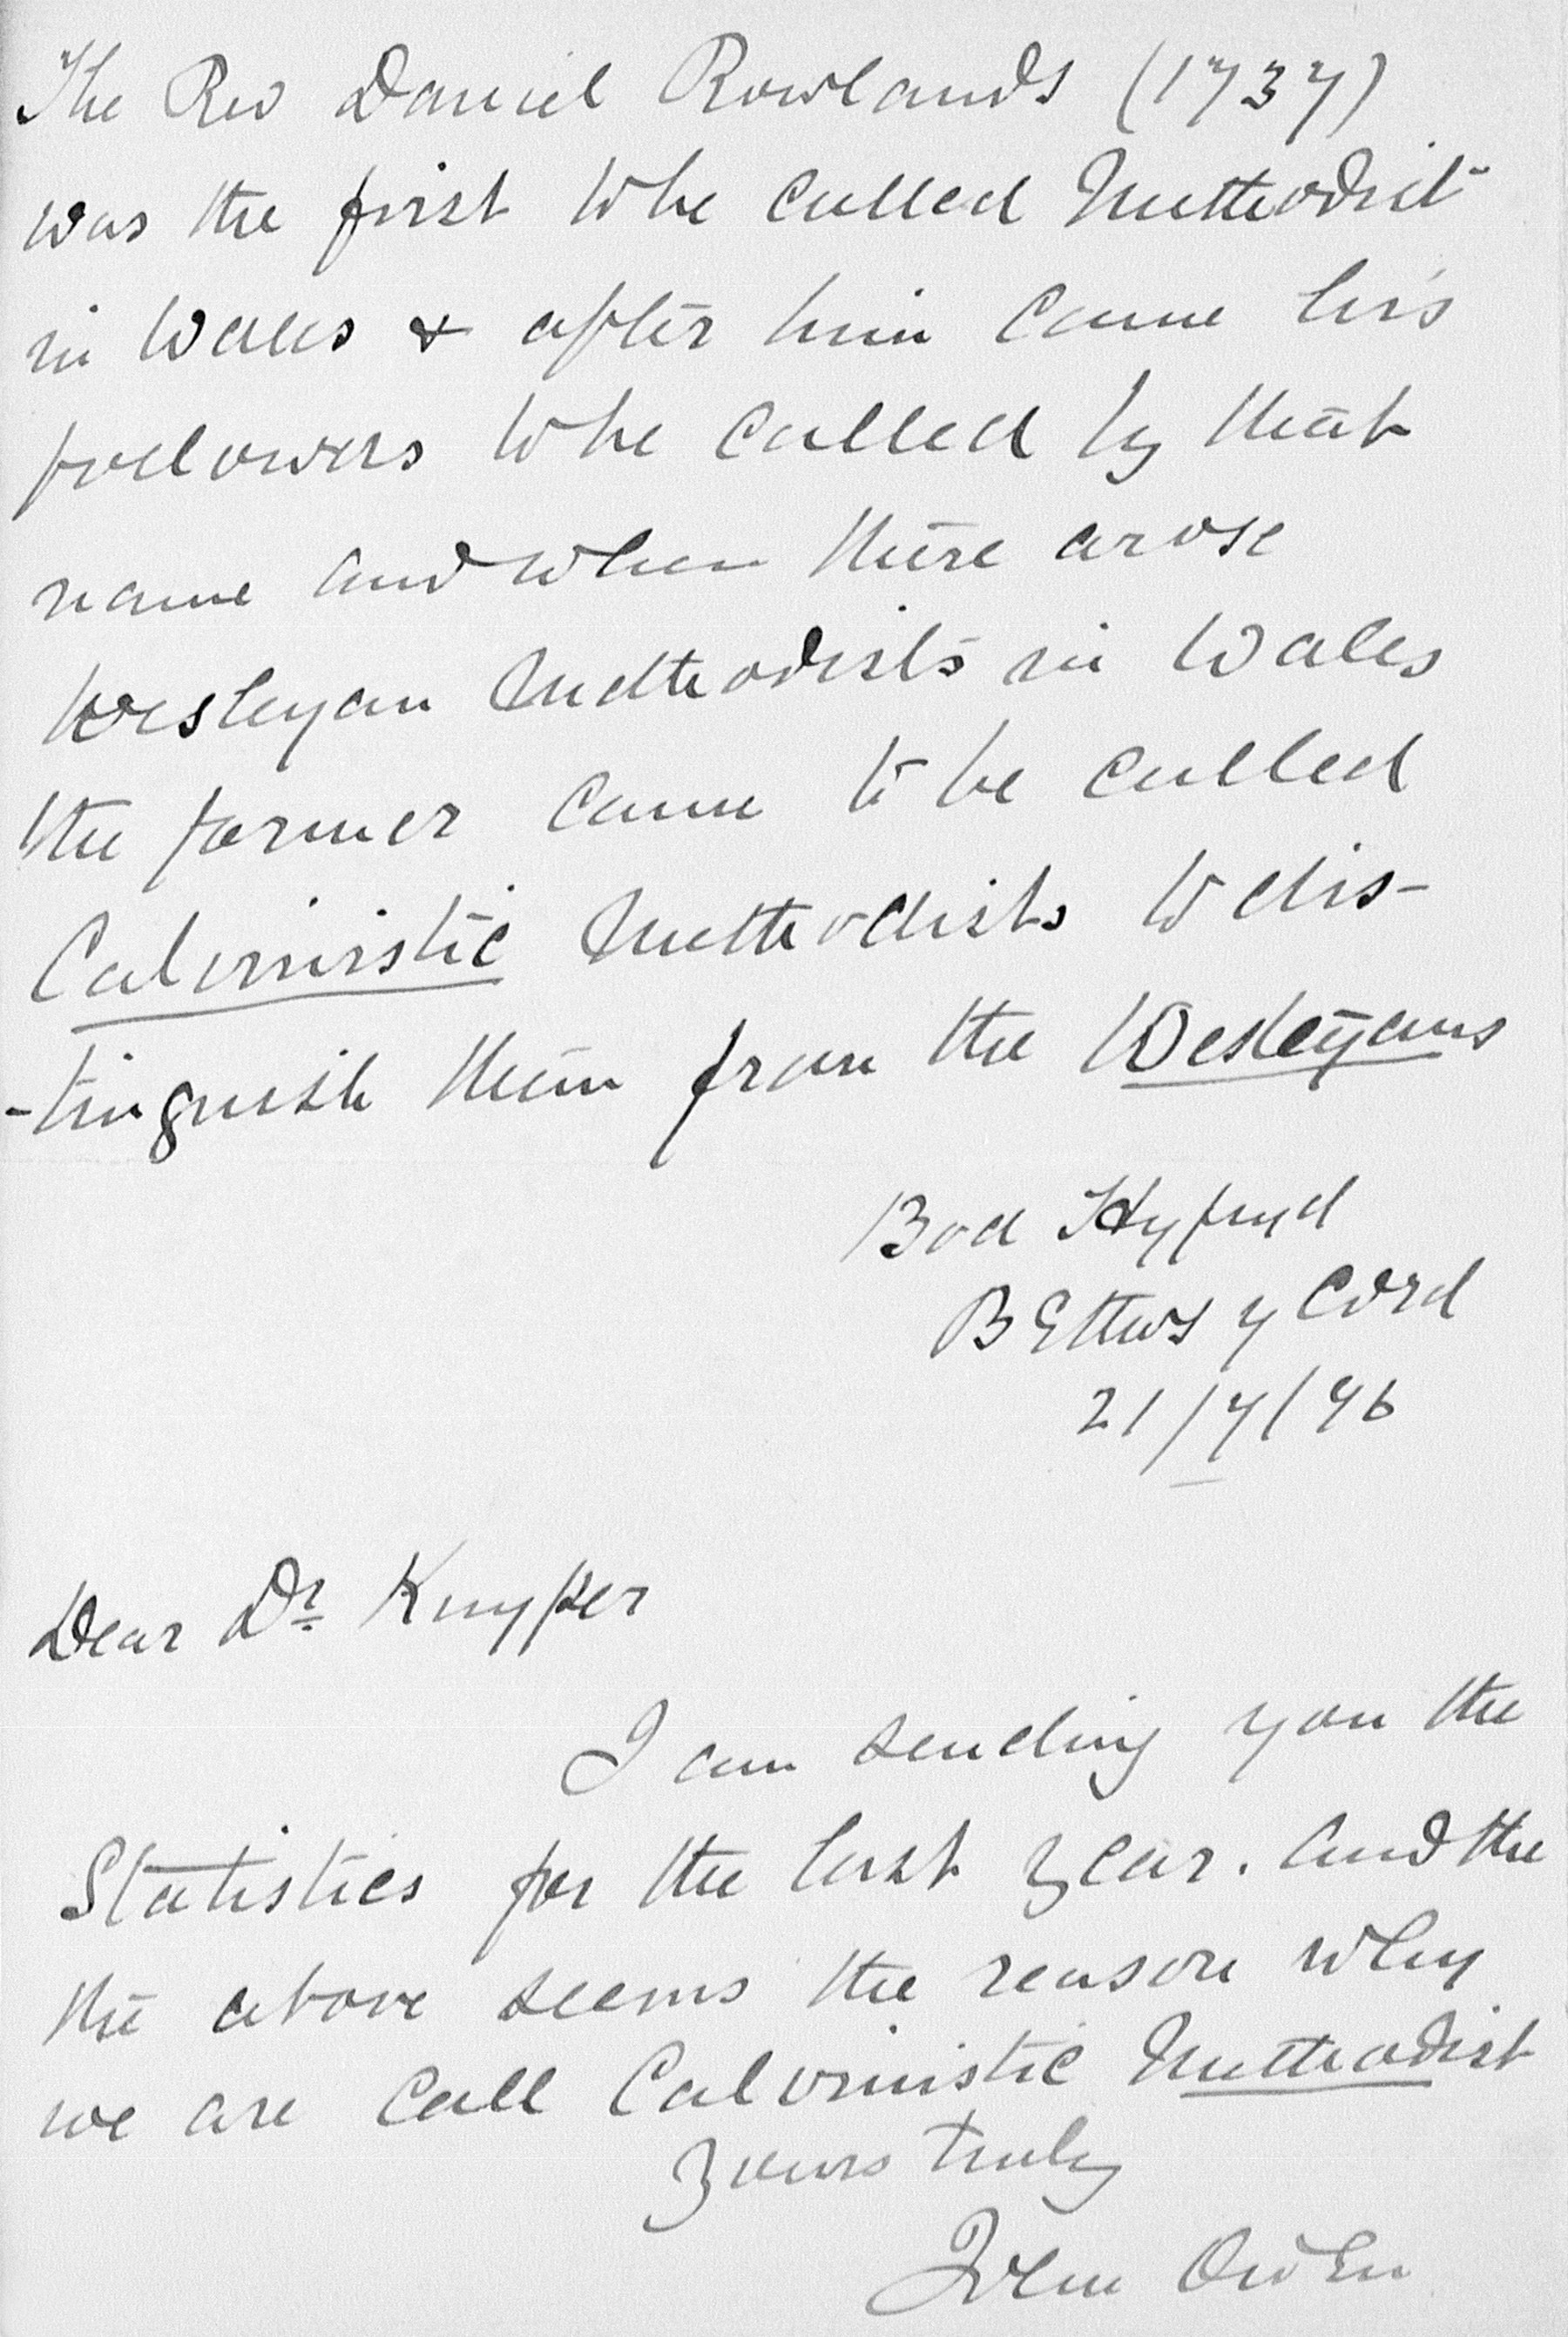 The Rev Daniel Rowlands (1737)
was the first to be called Methodist
in Wales & after him came his
followers to be called by that
name and when there arose
Wesleyan Methodists in Wales
the former came to be called
Calvinistic Methodists to dis-
-tinguish them from the Wesleyans
Bod Hyfryd
Bettws y Coed
21/7/96
Dear Dr Kuyper
I am sending you the
Statistics for the last year. And the
the above seems the reason why
we are call Calvinistic Methodist
Yours truly
John Owen